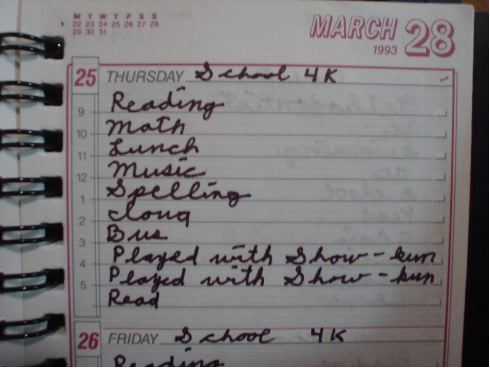 M T W T F S S
22 23 24 25 26 27 28
29 30 31
MARCH 28
1993
25 THURSDAY School 4K
Reading
9
Math
10
Lunch
11
Music
12
Spelling
1
cloug
2
Bus
3
Played with Show-kun
4
Played with Show-kun
5
Read
26 FRIDAY School 4K
Reading